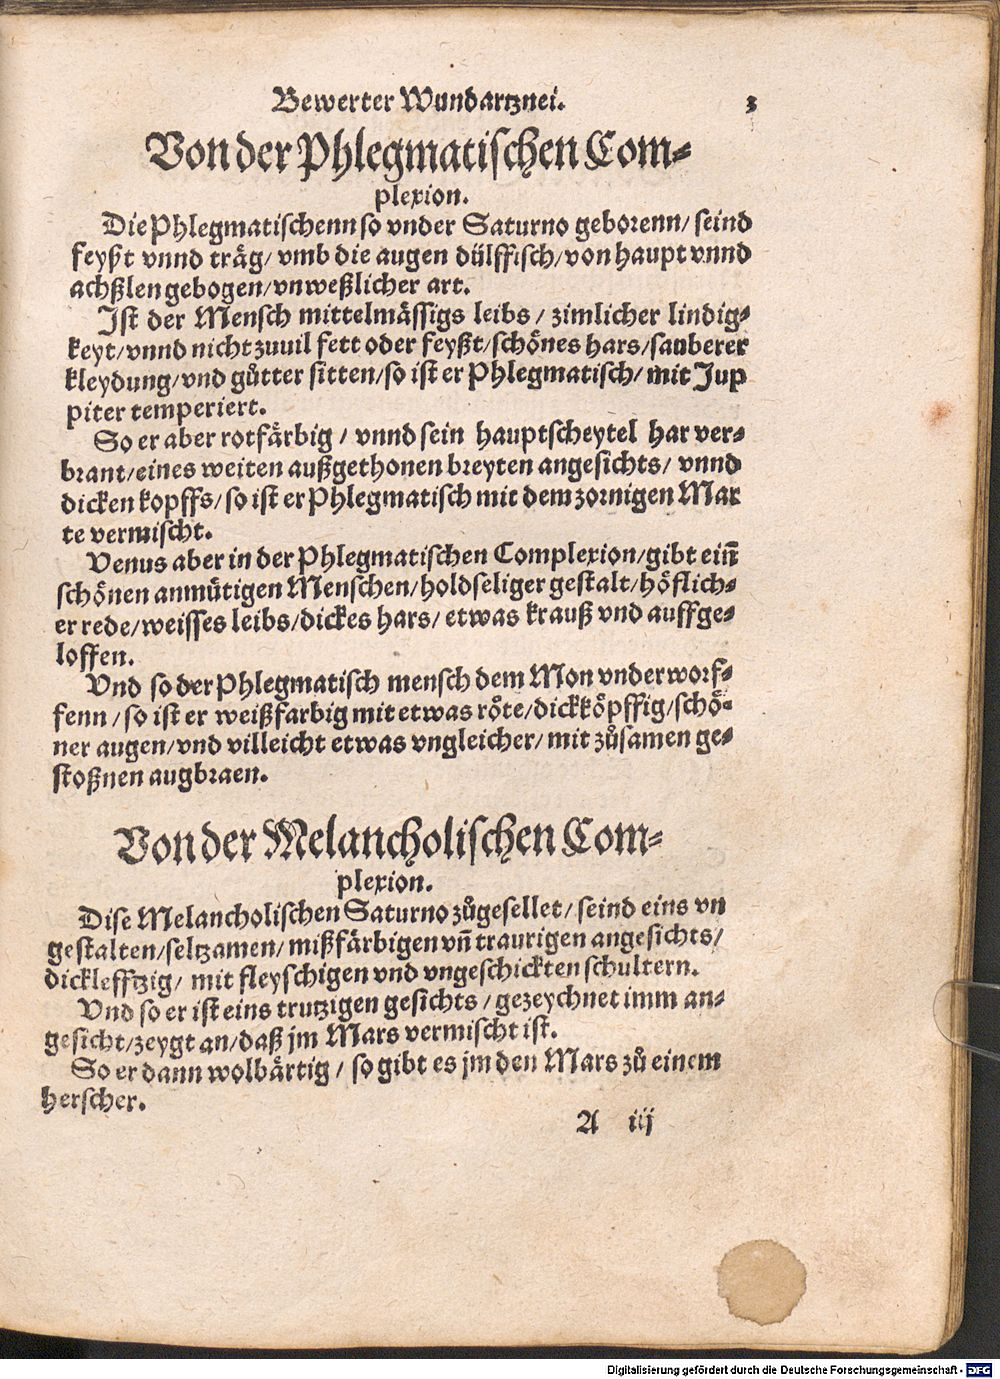 Bewerter Wundartznei. 3
Von der Phlegmatischen Com⸗
plexion.
Die Phlegmatischenn so vnder Saturno geborenn/ seind
feyßt vnnd träg/ vmb die augen dülffisch/ von haupt vnnd
achßlen gebogen/ vnweßlicher art.
Ist der Mensch mittelmässigs leibs/ zimlicher lindig⸗
keyt/ vnnd nicht zuuil fett oder feyßt/ schönes hars/ sauberer
kleydung/ vnd gůtter sitten/ so ist er Phlegmatisch/ mit Jup
piter temperiert.
So er aber rotfärbig/ vnnd sein hauptscheytel har ver⸗
brant/ eines weiten außgethonen breyten angesichts/ vnnd
dicken kopffs/ so ist er Phlegmatisch mit dem zornigen Mar
te vermischt.
Venus aber in der Phlegmatischen Complexion/ gibt ein̄
schönen anmütigen Menschen/ holdseliger gestalt/ höflich⸗
er rede/ weisses leibs/ dickes hars/ etwas krauß vnd auffge⸗
loffen.
Vnd so der Phlegmatisch mensch dem Mon vnderworf⸗
fenn/ so ist er weißfarbig mit etwas röte/ dickköpffig/ schö⸗
ner augen/ vnd villeicht etwas vngleicher/ mit zůsamen ge⸗
stoßnen augbraen.
Von der Melancholischen Com⸗
plexion.
Dise Melancholischen Saturno zůgesellet/ seind eins vn
gestalten/ seltzamen/ mißfärbigen vn̄ traurigen angesichts/
dicklefftzig/ mit fleyschigen vnd vngeschickten schultern.
Vnd so er ist eins trutzigen gesichts/ gezeychnet imm an⸗
gesicht/ zeygt an/ daß jm Mars vermischt ist.
So er dann wolbärtig/ so gibt es jm den Mars zů einem
herscher.
A iij
Digitalisierung gefördert durch die Deutsche Forschungsgemeinschaft - DFG